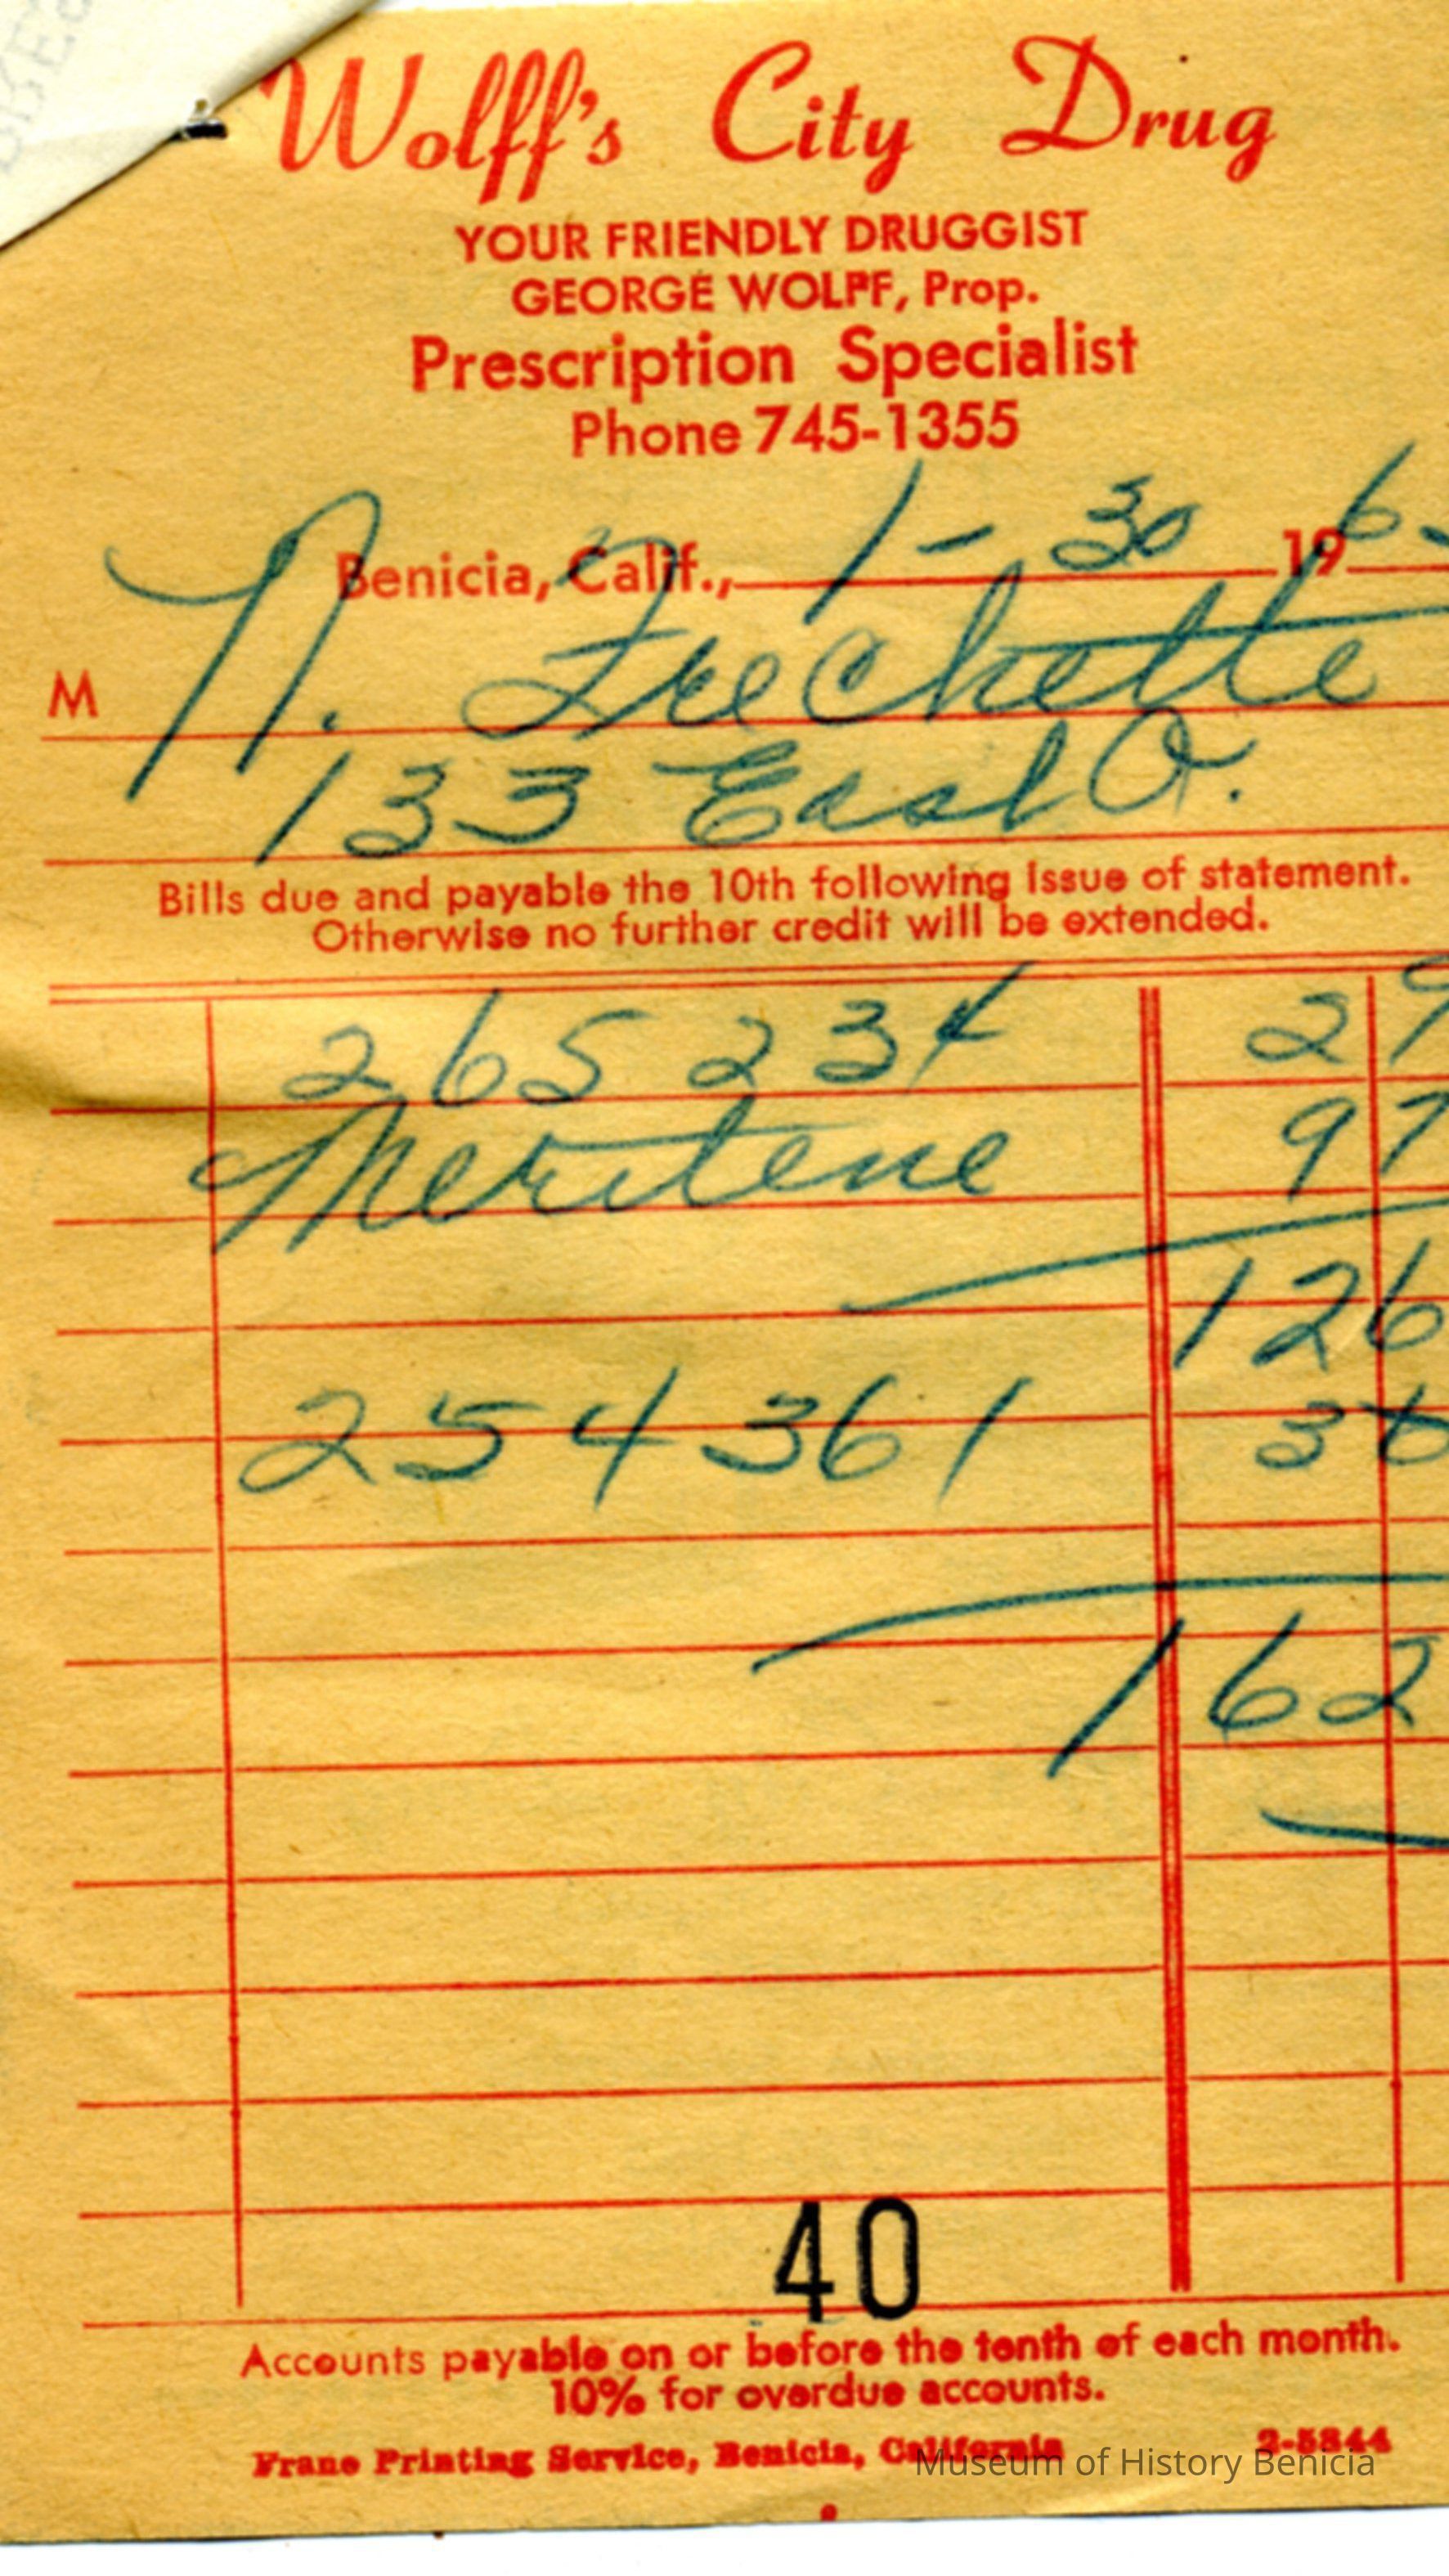 Wolff's City Drug
YOUR FRIENDLY DRUGGIST
GEORGE WOLFF, Prop.
Prescription Specialist
Phone 745-1355
Benicia, Calif., 1-30 196
M N. Frechette
133 East O.
Bills due and payable the 10th following issue of statement.
Otherwise no further credit will be extended.
265234 29
Meritene 97
126
254361 36
162
40
Accounts payable on or before the tenth of each month.
10% for overdue accounts.
Frane Printing Service, Benicia, California 2-5844
Museum of History Benicia